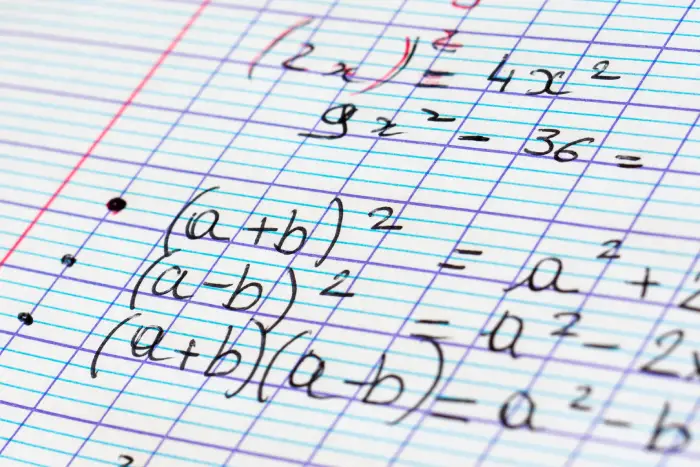 (2x)² = 4x²
9x² - 36 =
• (a+b)² = a² +
• (a-b)² = a² - 2
• (a+b)(a-b) = a² - b
2